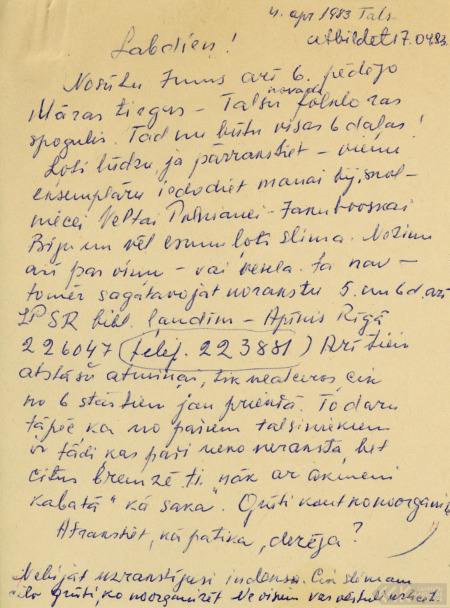 4. apr 1983 Tals
atbildēt 17.04.83.
Labdien!
Nosūtu Jums arī 6. pēdējo
Māras tirgus – Talsu novada folkloras
spogulis. Tad nu būtu visas 6 daļas!
Ļoti lūdzu, ja pārrakstiet – vienu
eksemplāru iedodiet manai bij. skol-
niecei Veltai
Biju un vēl esmu ļoti slima. Nezinu
arī par viņu – vai vesela. Ja nav –
tomēr sagatavojat norakstu 5. un 6 d. arī
LPSR bibl. ļaudīm – Apinis Rīgā
226047 (telef. 223881) Arī tiem
atstāšu atmiņai, tik neatceros, cik
no 6 stāstiem jau priekšā. To daru
tāpēc ka no pašiem talsiniekiem
ir tādi kas paši neko neraksta, bet
citus bremzē, ti. nāk ar akmeni
kabatā "kā saka". Grūti kaut ko noorganiz.
Atrakstiet, kā patika, derēja?
Nebijāt uzrakstījusi indeksu. Cik slimam
cilv. grūti ko noorganizēt